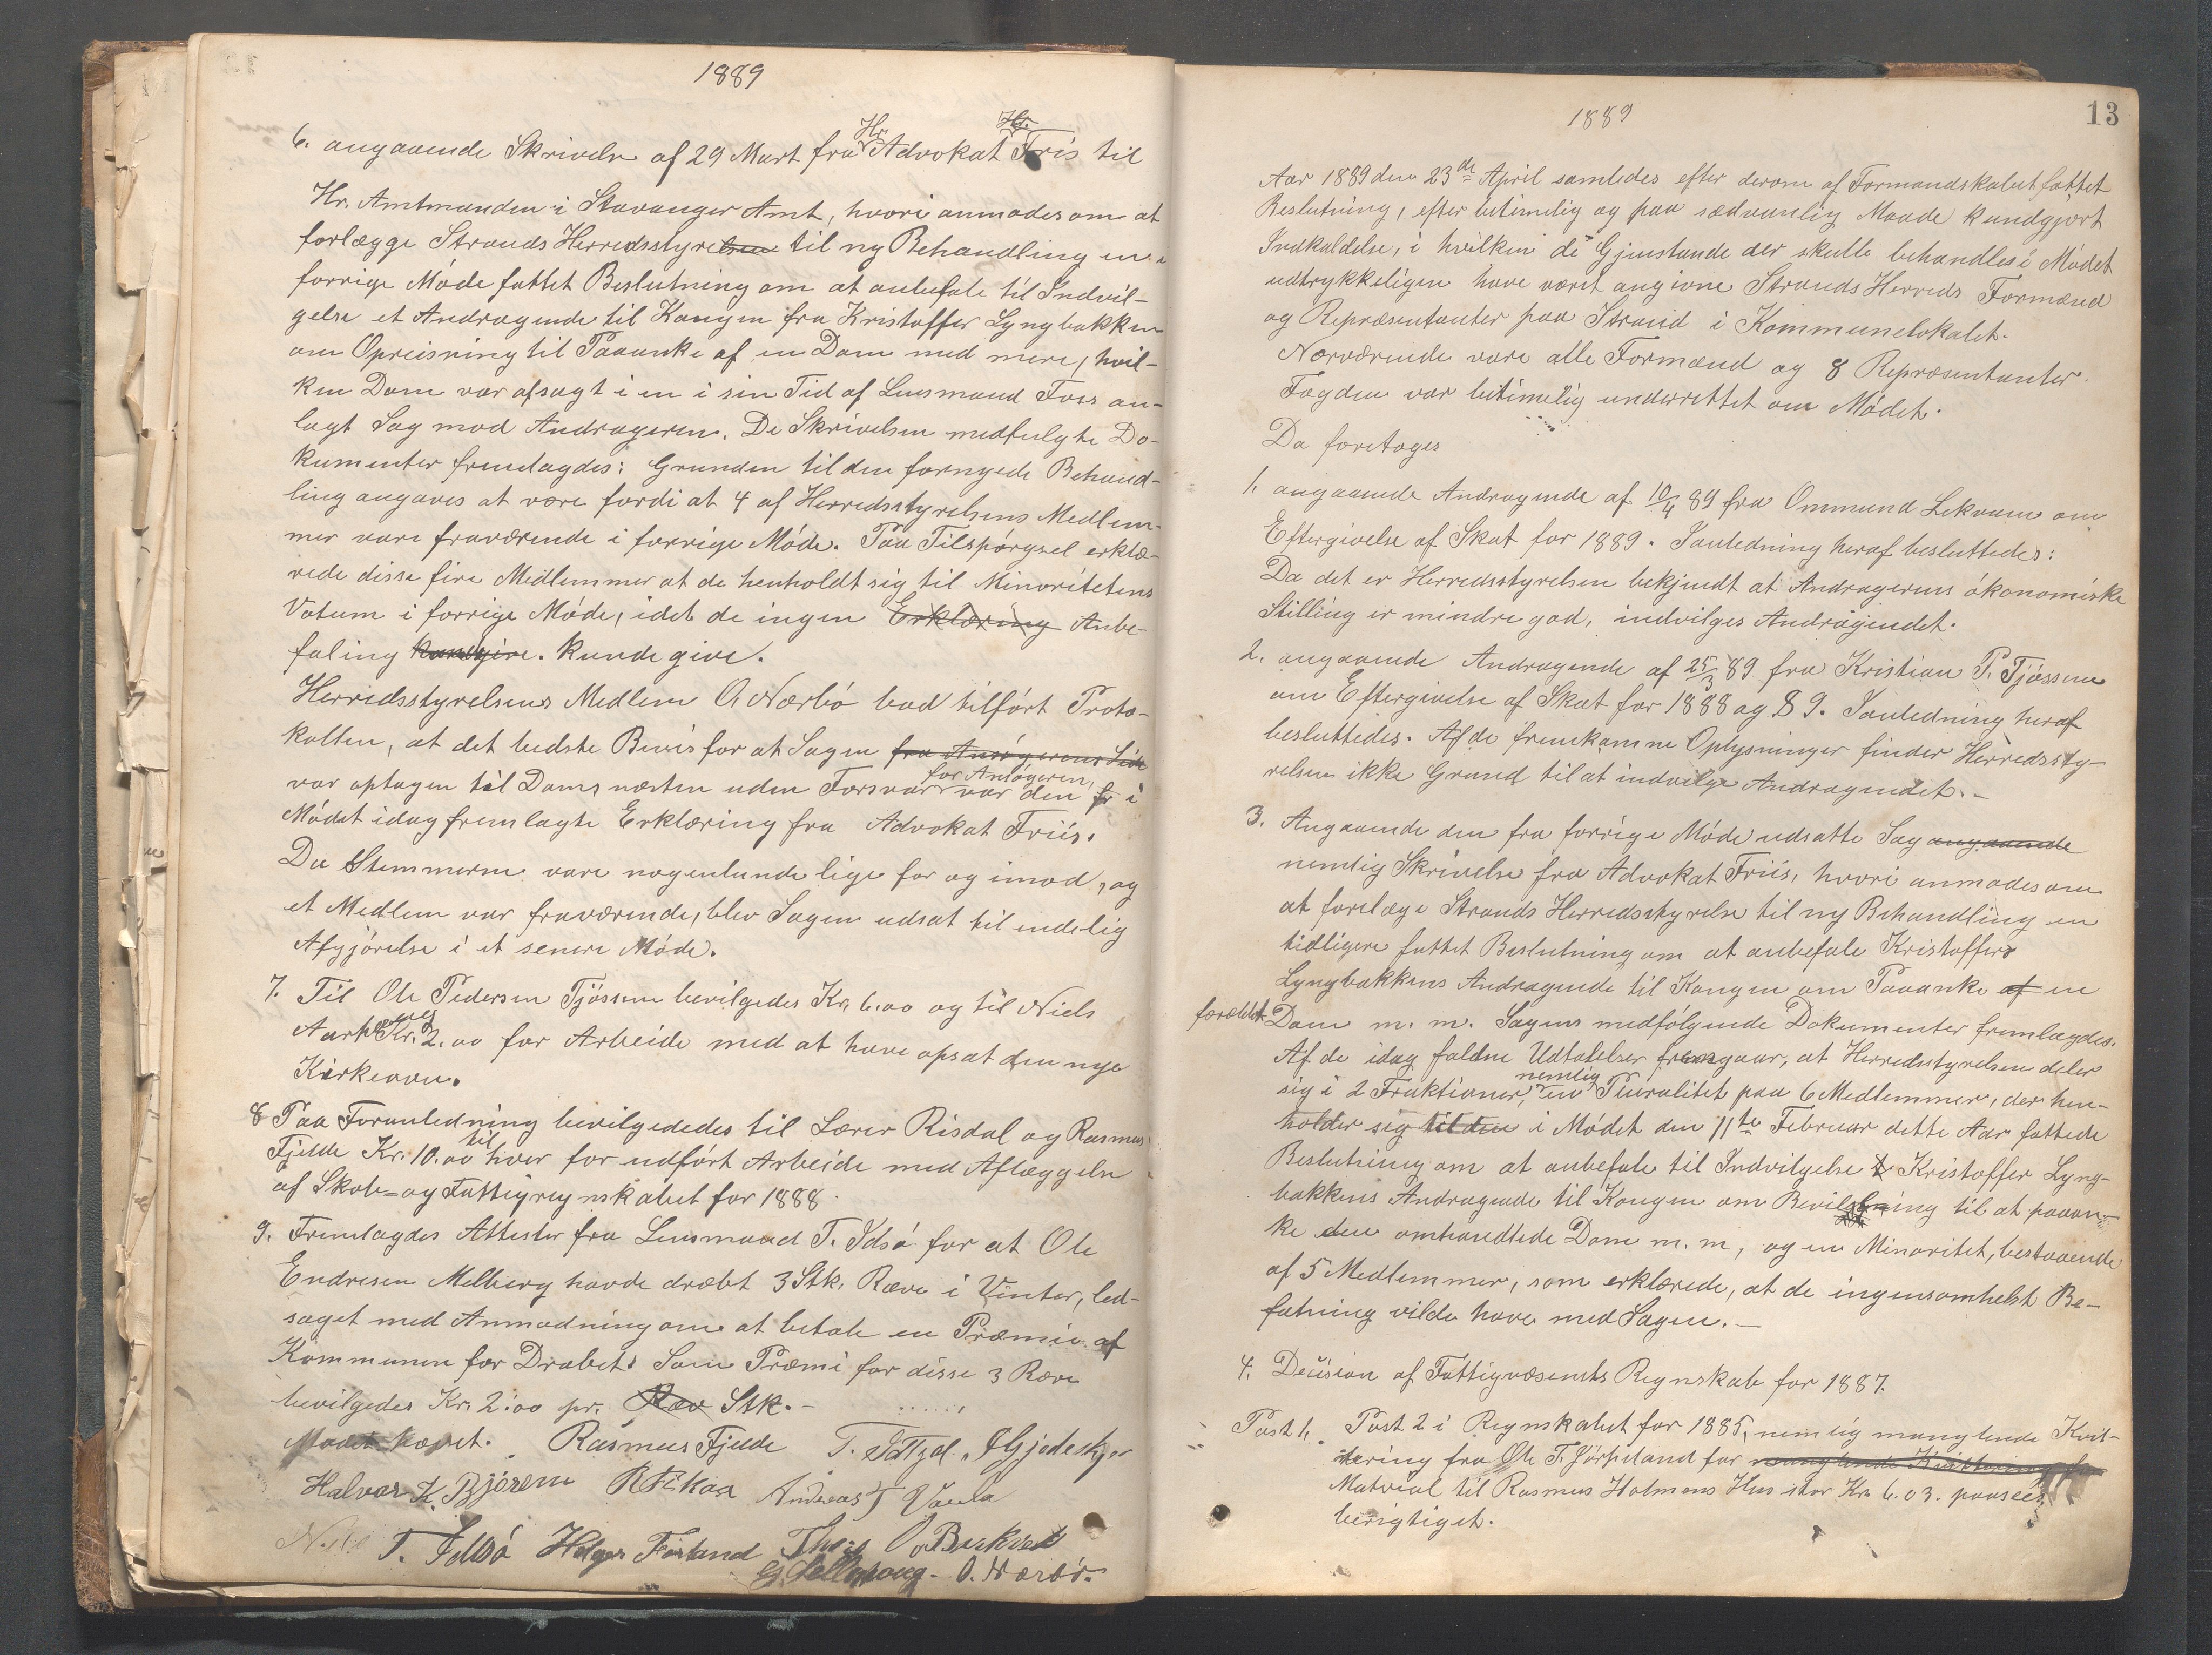 1889
6. angaaende Skrivelse af 29 Mart fra Hr Advokat Friis til
Hr. Amtmanden i Stavanger Amt, hvori anmodes om at
forlægge Strands Herredsstyrelsen til ny Behandling en i
forrige Møde fattet Beslutning om at anbefale til Indvil-
gelse et Andragende til Kongen fra Kristoffer Lyngbakken
om Opreisning til Paaanke af en Dom med mere, hvil-
ken Dom var afsagt i en i sin Tid af Lensmand Foss an-
lagt Sag mod Andrageren. De Skrivelsen medfulgte Do-
kumenter fremlagdes: Grunden til den fornyede Behand-
ling angaves at være fordi at 4 af Herredsstyrelsens Medlem-
mer vare fraværende i forrige Møde. Paa Tilspørgsel erklæ-
rede disse fire Medlemmer at de henholdt sig til Minoritetens
Votum i forrige Møde, idet de ingen Erklæring Anbe-
faling kunde give. kunde give.
Herredsstyrelsens Medlem O. Nærbø bad tilført Proto-
kollen, at det bedste Bevis for at Sagen fra Ansøgerens Side
var optagen til Doms næsten uden Forsvar for Ansøgeren, var den fr i
Mødet idag fremlagte Erklæring fra Advokat Friis.
Da Stemmerne vare nogenlunde lige for og imod, og
et Medlem var fraværende, blev Sagen udsat til endelig
Afgjørelse i et senere Møde.
7. Til Ole Pedersen Tjøssem bevilgedes Kr. 6.00 og til Niels
Kr. 2.00 for Arbeide med at have opsat den nye
Kirkeovn.
8 Paa Foranledning bevilgededes til Lærer Risdal og Rasmus
Fjelde Kr. 10.00 til hver for udført Arbeide med Aflæggelse
af Skole- og Fattigregnskabet for 1888.
9. Fremlagdes Attester fra Lensmand T. Idsø for at Ole
Endresen Melberg havde dræbt 3 Stk. Ræve i Vinter, led-
saget med Anmodning om at betale en Præmie af
Kommunen for Drabet. Som Præmi for disse 3 Ræve
bevilgedes Kr. 2:00 pr. Ræv Stk. -
Mødet hævet. Rasmus Fjelde T.
Halvor K. Bjørem R Fiskaa Andreas T Vaula
T. Idsø Helger Førland Thos O. Barkved
O. Nærbø.
1889
13
Aar 1889 den 23de April samledes efter derom af Formandskabet fattet
Beslutning, efter betimelig og paa sædvanlig Maade kundgjort
Indkaldelse, i hvilken de Gjenstande der skulle behandles i Mødet
udtrykkeligen have været angivne Strands Herreds Formænd
og Repræsentanter paa Strand i Kommunelokalet.
Nærværende vare alle Formænd og 8 Repræsentanter.
Fogden var betimelig underrettet om Mødet.
Da foretoges
1. angaaende Andragende af 10/4 89 fra Ommund Lekvam om
Eftergivelse af Skat for 1889. I anledning heraf besluttedes:
Da det er Herredsstyrelsen bekjendt at Andragerens økonomiske
Stilling er mindre god, indvilges Andragendet.
2. angaaende Andragende af 25/3 89 fra Kristian P. Tjøssem
om Eftergivelse af Skat for 1888 og 89. I anledning heraf
besluttedes. Af de fremkomne Oplysninger finder Herredssty-
relsen ikke Grund til at indvilge Andragendet. -
3. Angaaende den fra forrige Møde udsatte Sag angaaende
nemlig Skrivelse fra Advokat Friis, hvori anmodes om
at forelæge Strands Herredsstyrelse til ny Behandling en
tidligere fattet Beslutning om at anbefale Kristoffer
Lyngbakkens Andragende til Kongen om Paaanke af en
forældet Dom m. m. Sagens medfølgende Dokumenter fremlagdes.
Af de idag faldne Udtalelser fremgaar, at Herredsstyrelsen deler
sig i 2 Fraktioner, nemlig en Pluralitet paa 6 Medlemmer, der hen-
holder sig til den i Mødet den 11te Februar dette Aar fattede
Beslutning om at anbefale til Indvilgelse Kristoffer Lyng-
bakkens Andragende til Kongen om Bevilgning til at paaan-
ke den omhandlede Dom m. m, og en Minoritet, bestaaende
af 5 Medlemmer, som erklærede, at de ingensomhelst Be-
fatning vilde have med Sagen. -
4. Decision af Fattigvæsenets Regnskab for 1887.
Post 1. Post 2 i Regnskabet for 1885, nemlig manglende Kvit-
tering fra Ole T. Jørpeland for manglende Kvittering for
Material til Rasmus Holmens Hus stor Kr. 6.03. paasees
berigtiget.